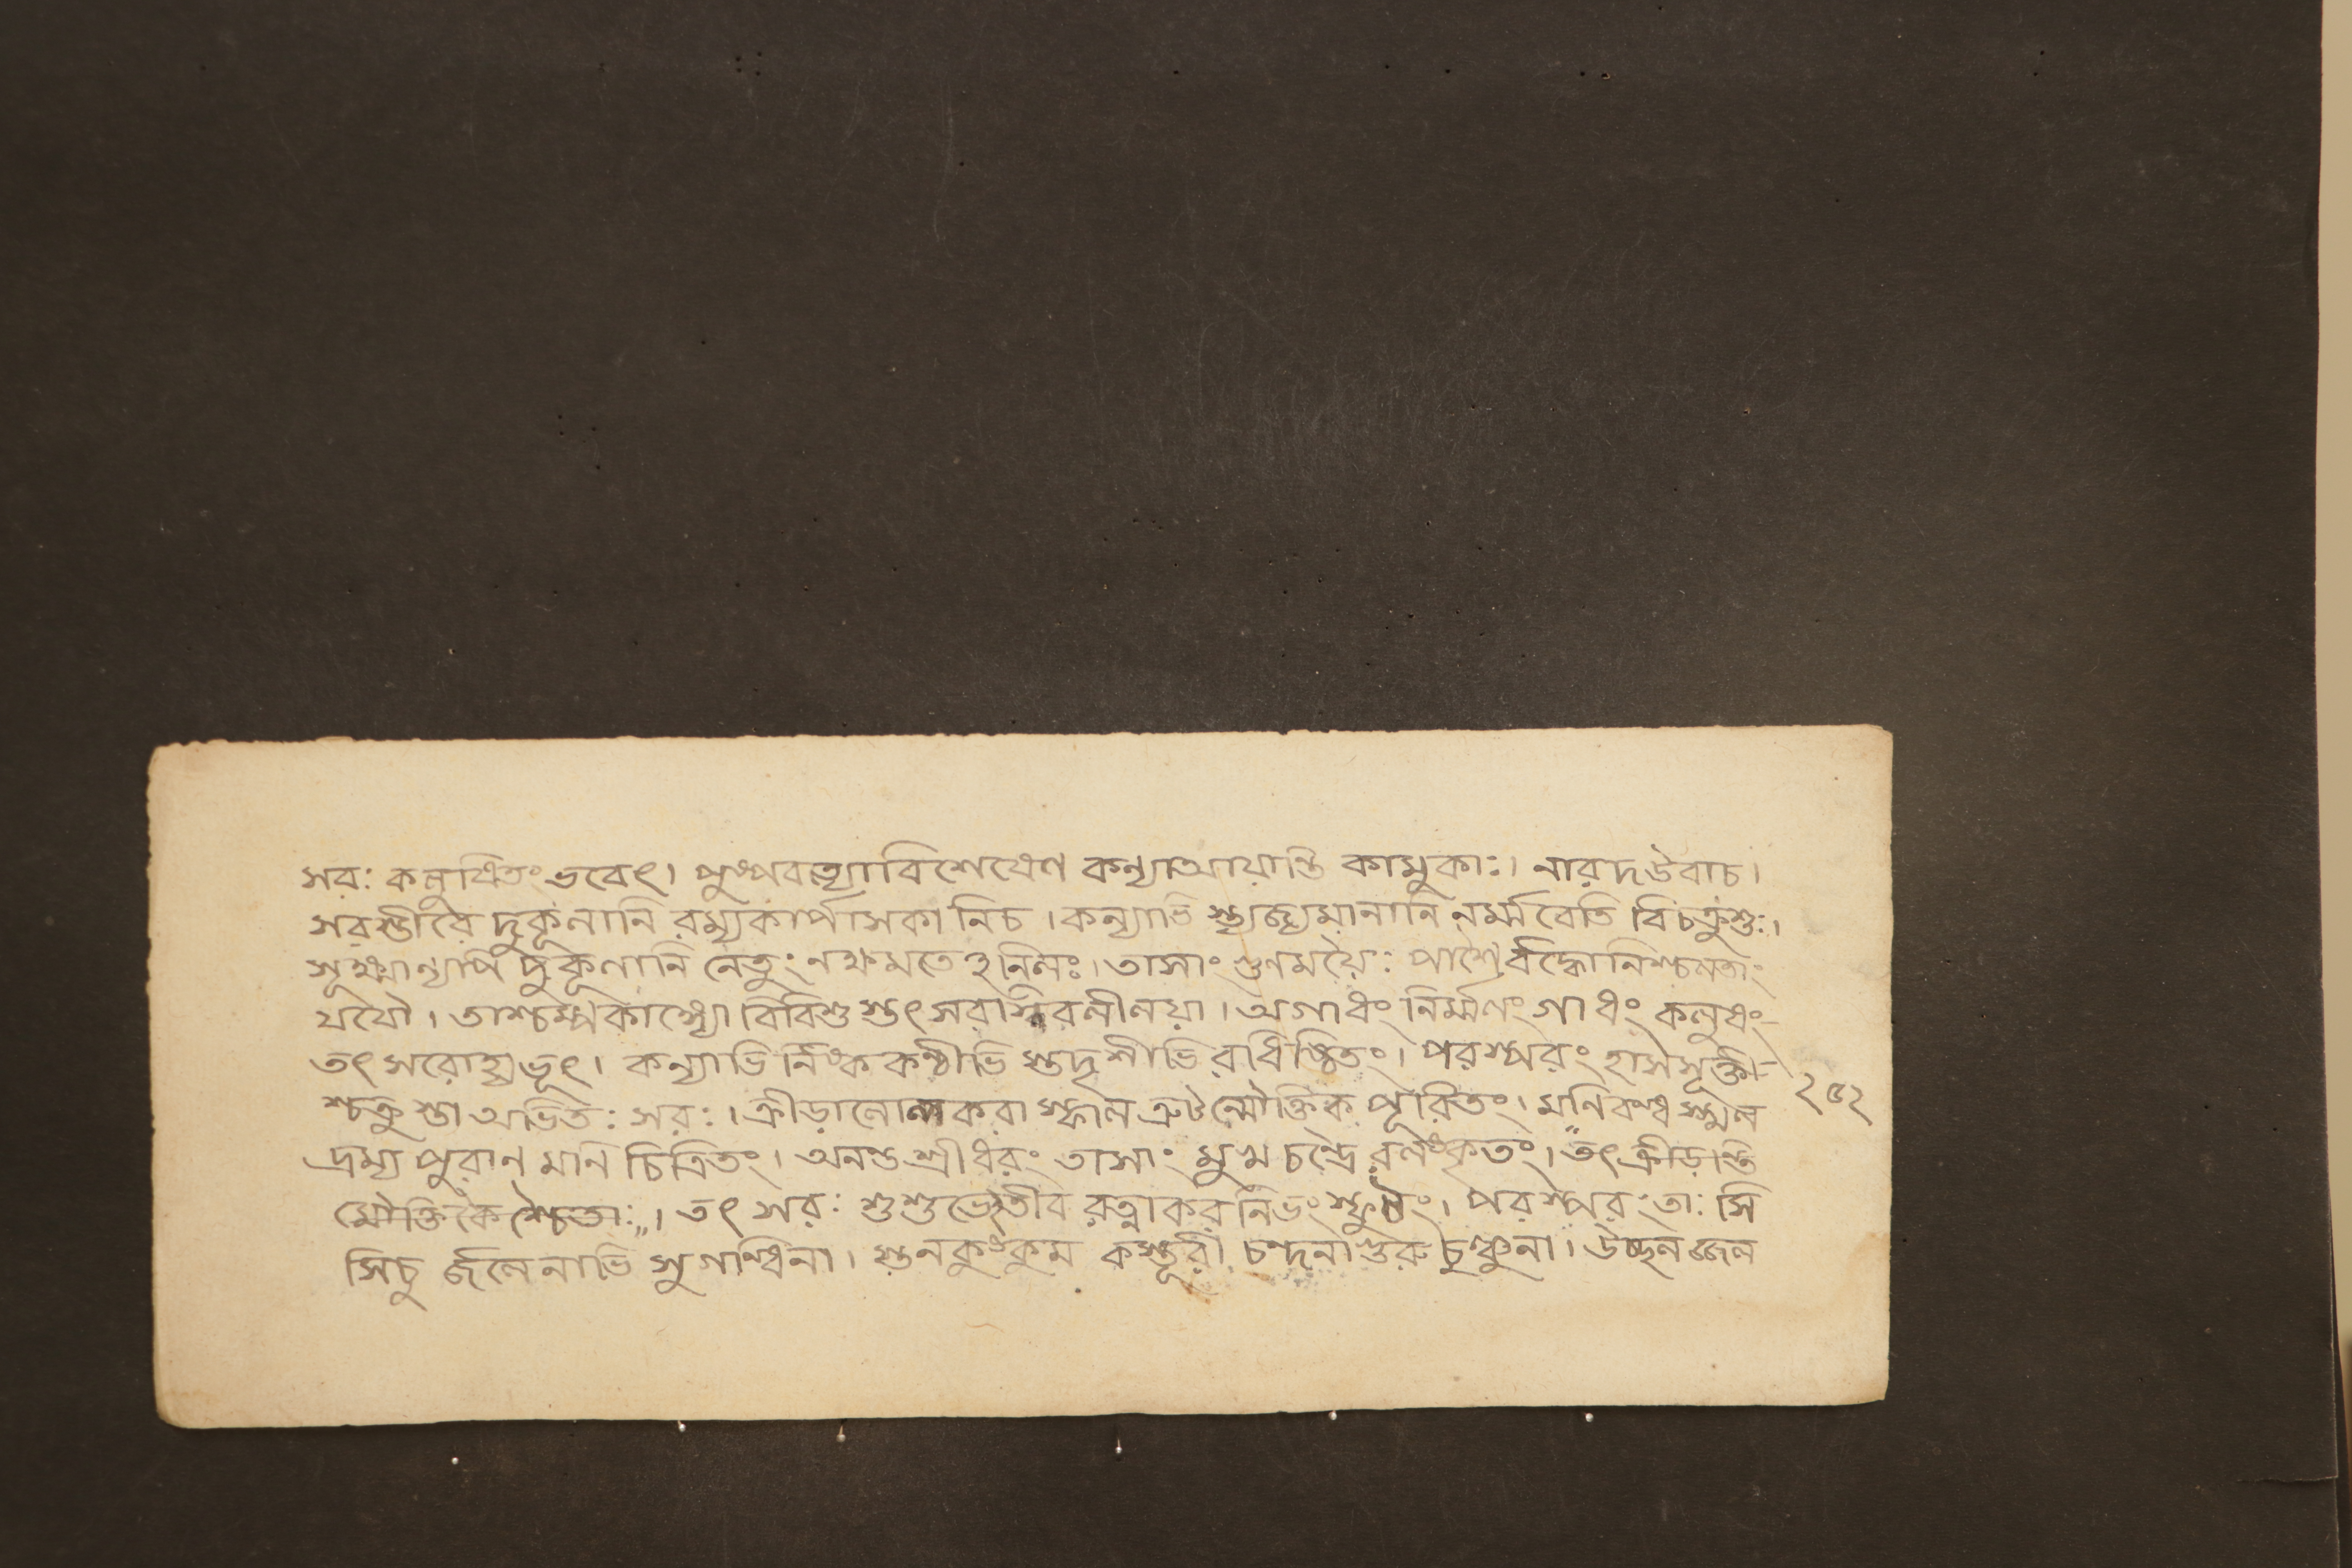 সরঃ কলুষিতং ভবেৎ। পুষ্পবত্যাবিশেষেণ কন্যাআয়ান্তি কামুকাঃ। নারদউবাচ।
সরস্তীরৈ দুকূলানি রম্যকার্পাসকা নিচ। কন্যাভি স্ত্যজ্যমানানি নর্ম্মবেতি বিচক্রুশুঃ।
সূক্ষ্মান্যপি দুকূলানি নেতুং নক্ষমতেঽনিলঃ। তাসাং গুনময়ৈঃ পাশৈর্বদ্ধোনিশ্চলতাং
যযৌ। তাশ্চম্পকাঙ্গ্যো বিবিশু স্তৎ সরা লীলয়া। অগাধং নির্ম্মলং গাধং কলুষং-
তৎ সরোহ্যভূৎ। কন্যাভি র্নিষ্ক কণ্ঠীভি স্তদৃশীভি রধিষ্ঠিতং। পরস্পরং হাসসূক্তী-
শ্চক্রু স্তা অভিতঃ সরঃ। ক্রীড়ালোলকরা স্ফাল ত্রুটন্মৌক্তিক পূরিতং। মনিবন্ধ স্খল
দ্রম্য পুরান মানি চিত্রিতং। অনন্ত শ্রীধরং তাসাং মুখ চন্দ্রৈ রলংকৃতং।" তৎ ক্রীড়ন্তি
মৌক্তিকৈশ্চৈতাঃ"। তৎ সরঃ শুশুভেঽতীব রত্নাকর নিভং স্ফুটং। পরস্পরং তাঃ সি
সিচু র্জলেনাভি সুগন্ধিনা। স্তনকুংকুম কস্তূরী চন্দনাগুরু চুঞ্চুনা। উচ্ছলজ্জল
২৫২